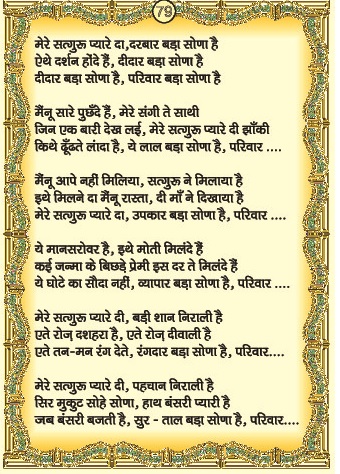 79
मेरे सत्गुरू प्यारे दा,दरबार बड़ा सोणा है
ऐथे दर्शन होंदे हैं, दीदार बड़ा सोणा है
दीदार बड़ा सोणा है, परिवार बड़ा सोणा है
मैंनू सारे पुछँदे हैं, मेरे संगी ते साथी
जिन एक बारी देख लई, मेरे सत्गुरू प्यारे दी झाँकी
किथे ढूँढते लांदा है, ये लाल बड़ा सोणा है, परिवार ....
मैंनू आपे नही मिलिया, सत्गुरू ने मिलाया है
इथे मिलने दा मैंनू रास्ता, दी माँ ने दिखाया है
मेरे सत्गुरू प्यारे दा, उपकार बड़ा सोणा है, परिवार ....
ये मानसरोवर है, इथे मोती मिलंदे हैं
कई जन्मा के बिछड़े प्रेमी इस दर ते मिलंदे हैं
ये घोटे का सौदा नहीं, व्यापार बड़ा सोणा है, परिवार ....
मेरे सत्गुरू प्यारे दी, बड़ी शान निराली है
एते रोज़ दशहरा है, एते रोज़ दीवाली है
एते तन-मन रंग देते, रंगदार बड़ा सोणा है, परिवार....
मेरे सत्गुरू प्यारे दी, पहचान निराली है
सिर मुकुट सोहे सोणा, हाथ बंसरी प्यारी है
जब बंसरी बजती है, सुर - ताल बड़ा सोणा है, परिवार....